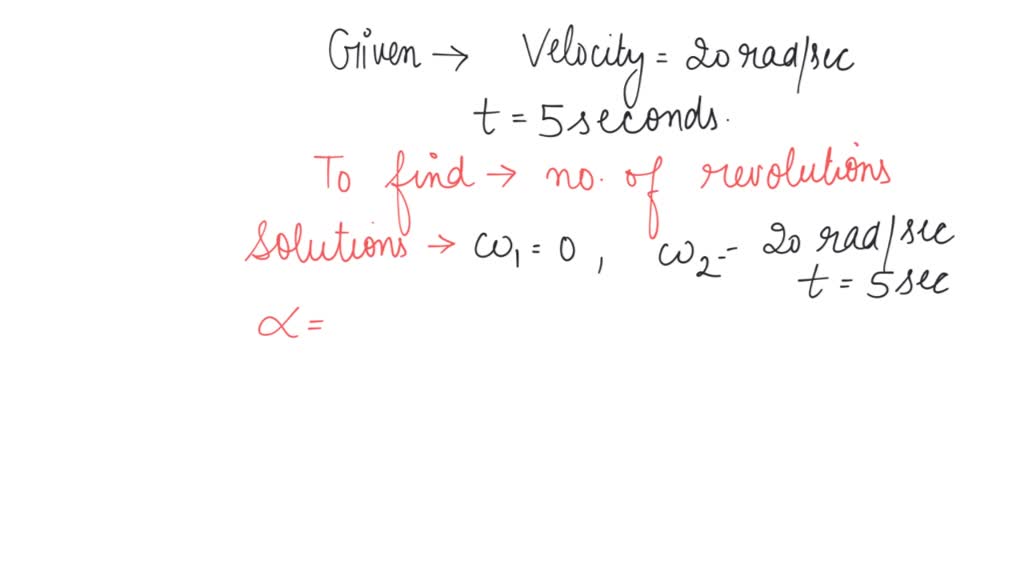 Given → Velocity = 20 rad/sec
t = 5 seconds.
To find → no. of revolutions
Solutions → ω₁ = 0 , ω₂ = 20 rad/sec
t = 5 sec
α =